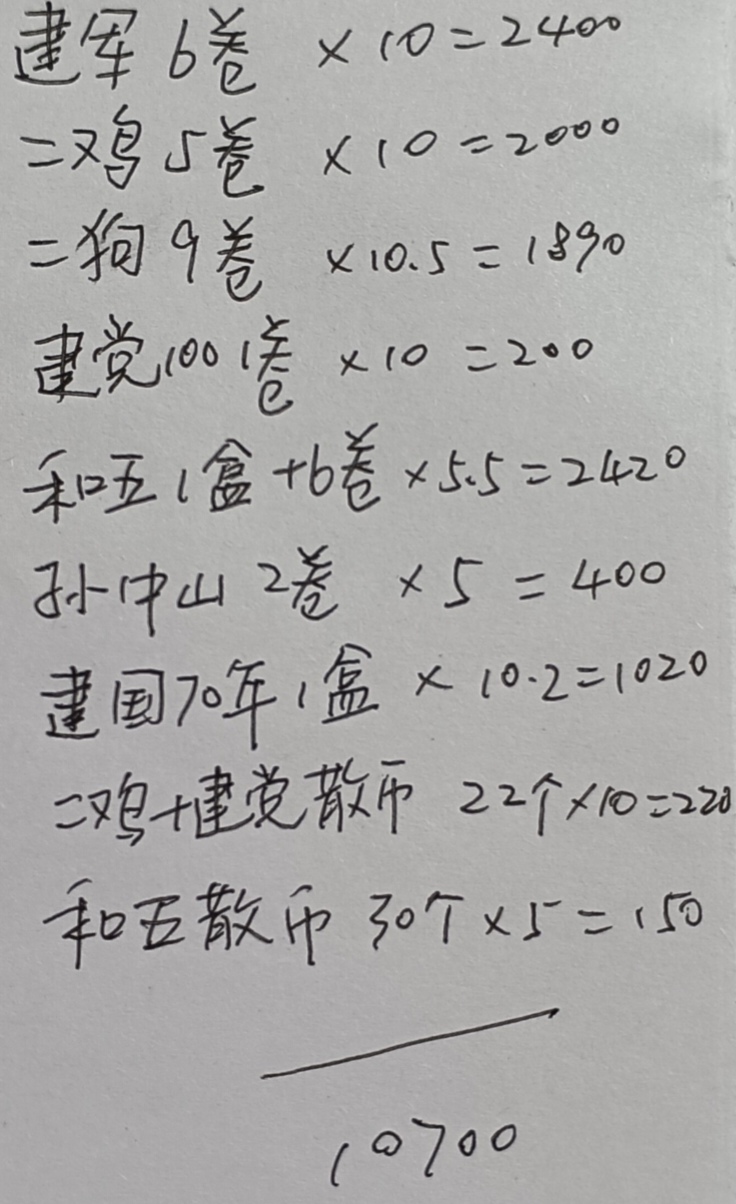 建军 6卷 ×10=2400
二鸡 5卷 ×10=2000
二狗 9卷 ×10.5=1890
建党100 1卷 ×10=200
和五 1盒+6卷×5.5=2420
孙中山 2卷 ×5=400
建国70年 1盒 ×10.2=1020
二鸡+建党散币 22个×10=220
和五散币 30个×5=150
10700